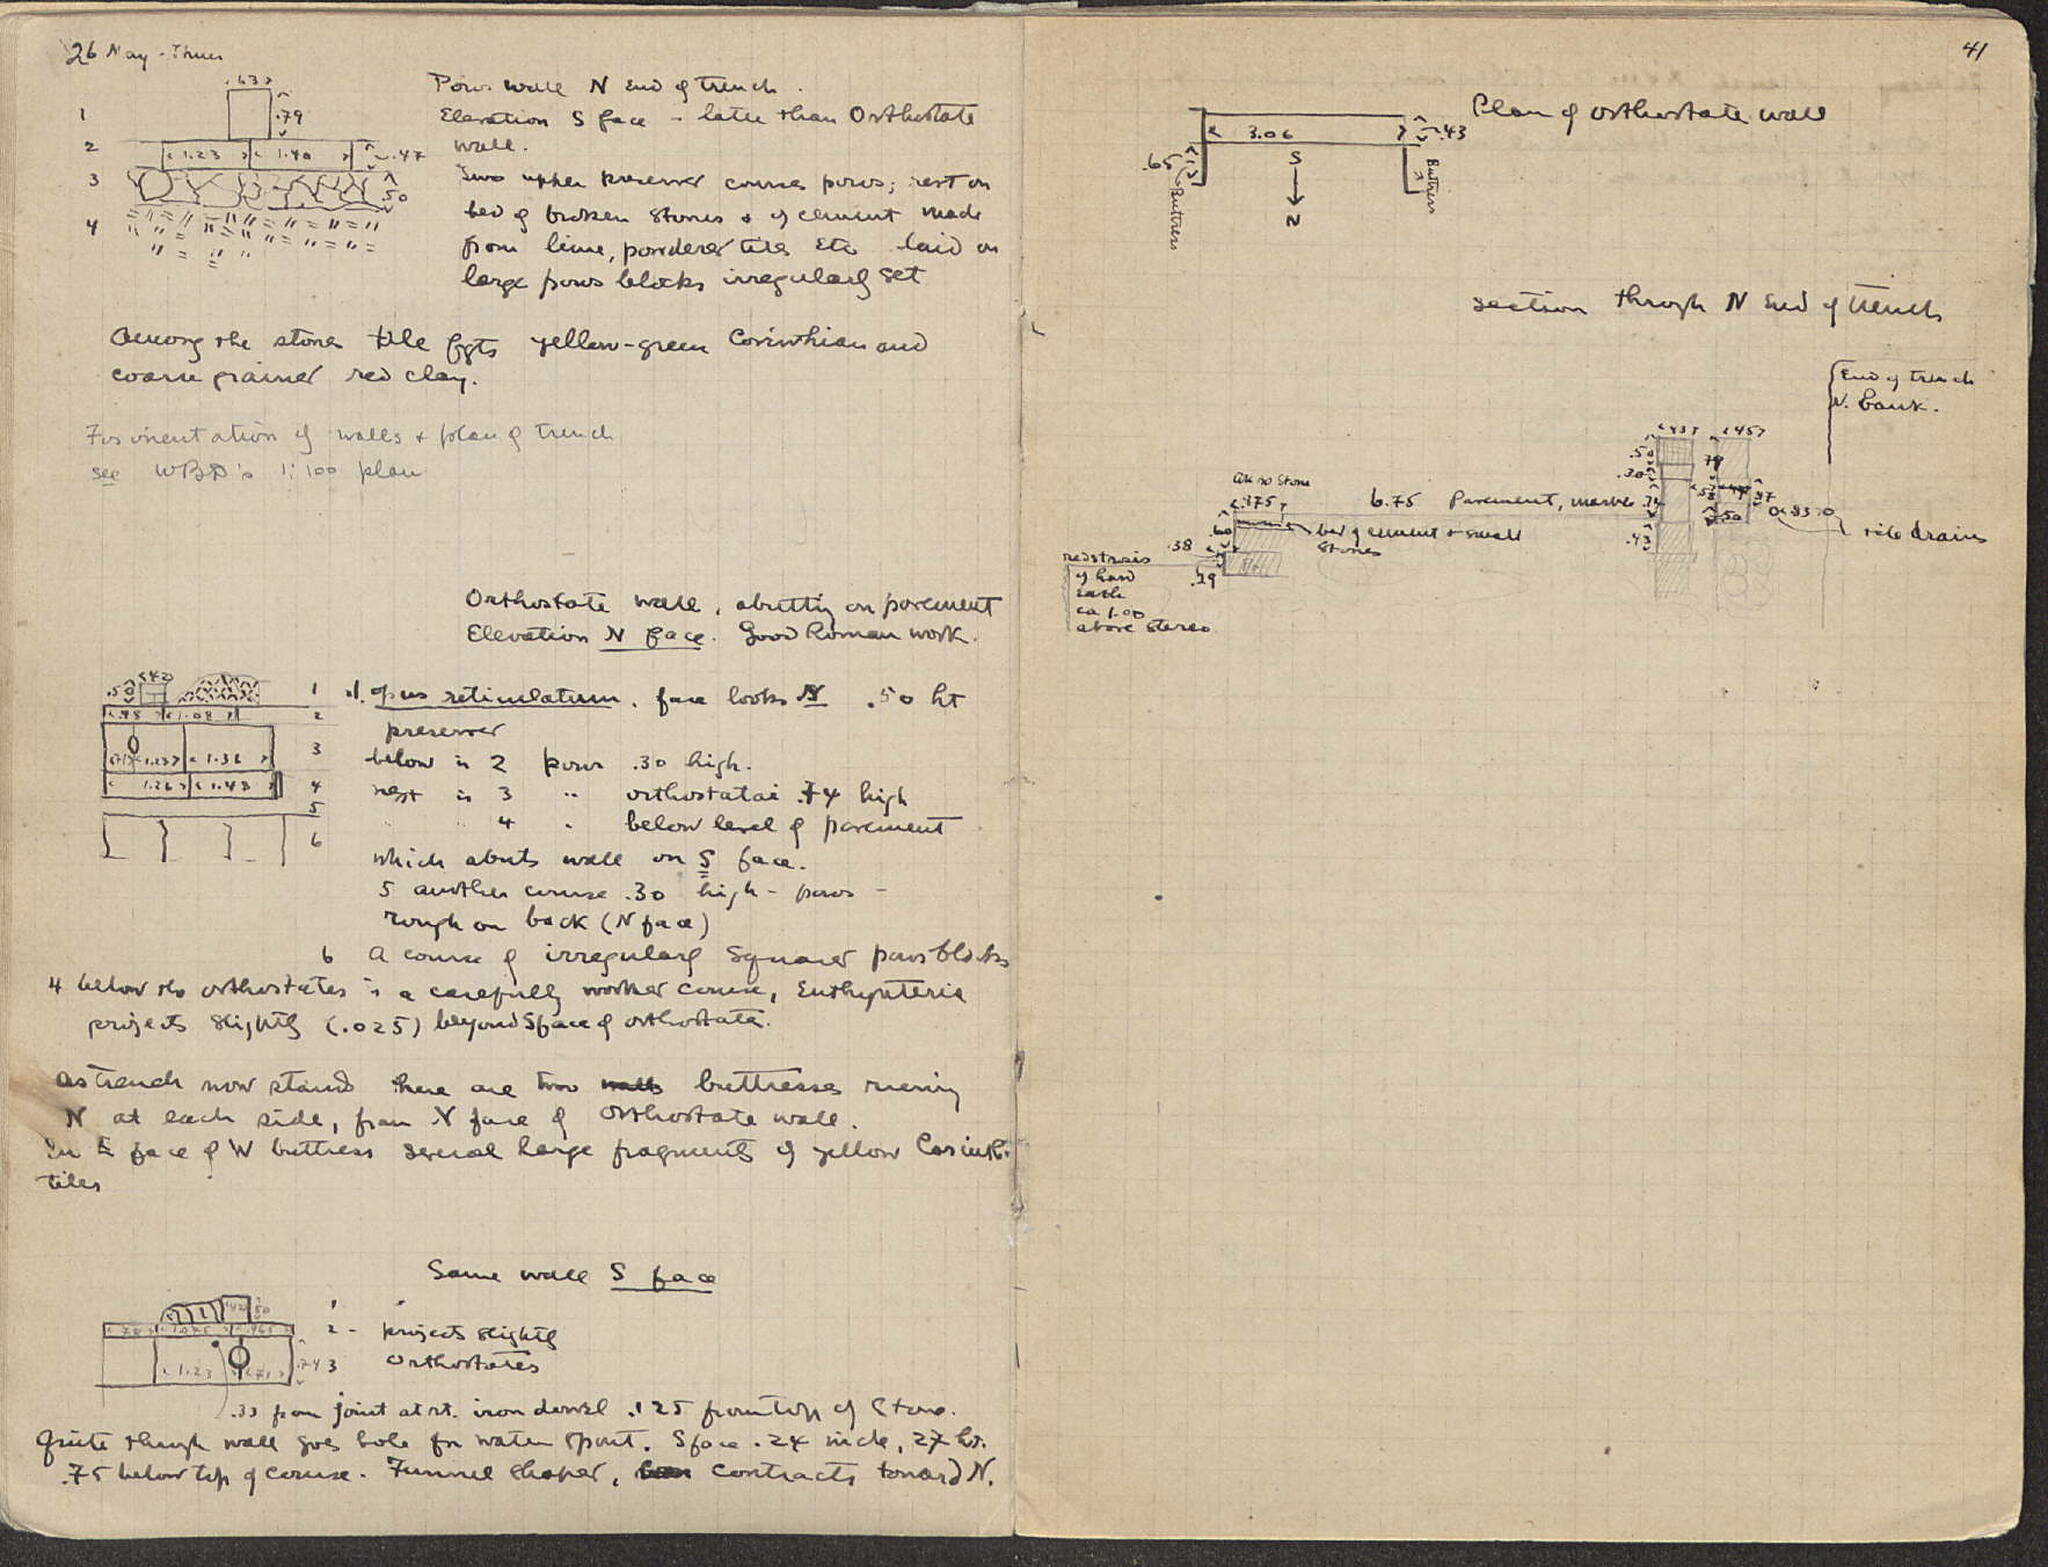 26 May - Thurs
.63
.79
1
2
3
4
1.23 1.40 .47
.50
Poros wall N End of trench.
Elevation S face - later than Orthostate
wall.
Two upper preserved courses poros; rest on
bed of broken stones & of cement made
from lime, powdered tiles etc laid on
large poros blocks irregularly set
Among the stones tile fgts yellow-green Corinthian and
coarse grained red clay.
For orientation of walls & plan of trench
see WBD's 1:100 plan
Orthostate wall, abutting on pavement
Elevation N face. Good Roman work.
.50 .42
1.08
1.36
1.26 1.43
1
2
3
4
5
6
1. opus reticulatum. face looks N .50 ht
preserved
below is 2 poros .30 high.
next is 3 " orthostatai .74 high
4 " below level of pavement
which abuts wall on S face.
5 another course .30 high - poros -
rough on back (N face)
6 A course of irregularly squared poros blocks
4 below the orthostates is a carefully worked course, Euthynteria
projects slightly (.025) beyond S face of orthostate.
As trench now stands there are two walls buttresses running
N at each side, from N face of Orthostate wall.
In E face of W buttress several large fragments of yellow Corinth.
tiles
Same wall S face
1
2 - projects slightly
3 Orthostates
.42 .50
1.23 .71 .74
.33 from joint at rt. iron dowel .125 from top of stone.
Quite through wall goes hole for water spout. S face .24 wide, 27 ht.
.75 below top of course. Funnel shaped, contracts toward N.
41
Plan of orthostate wall
3.06 .43
.65
Buttress
S
N
Buttress
section through N End of trench
End of trench
N. bank.
.43 .45
.50
.30
.79
.43
.50
.83
tile drains
6.75 Pavement, marble
.375
.60
bed of cement & small
stones
.38
.39
red strosis
of hard
earth
ca 1.00
above stereo